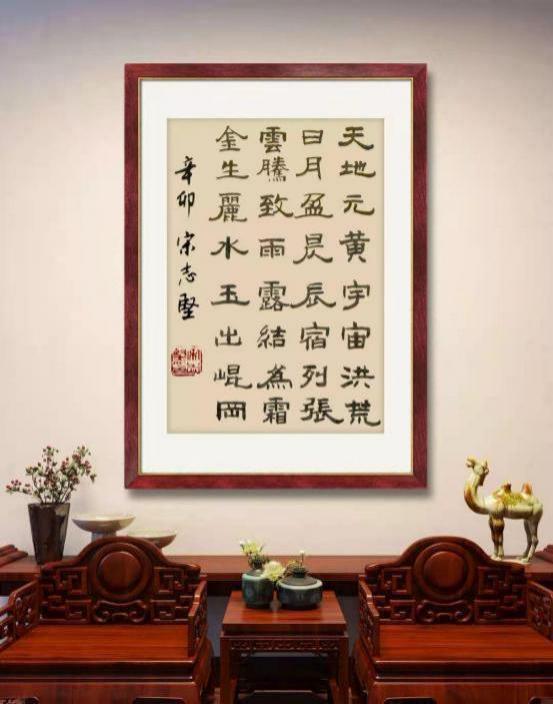 天地元黄宇宙洪荒
日月盈昃辰宿列張
雲騰致雨露結為霜
金生麗水玉出崐岡
辛卯 宋志堅